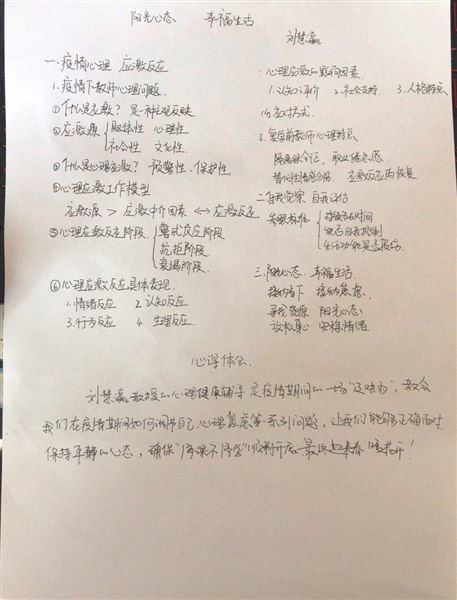 阳光心态 幸福生活
刘慧瀛
一.疫情心理 应激反应
1.疫情下教师心理问题.
①什么是应激? 是一种主观反映
②应激源 躯体性 心理性
社会性 文化性.
③什么是心理应激? 预警性、保护性
④心理应激工作模型
应激源 > 应激中介因素 ↔ 应激反应
⑤心理应激反应阶段 警戒反应阶段
抗拒阶段
衰竭阶段.
⑥心理应激反应具体表现
1.情绪反应 2.认知反应
3.行为反应 4.生理反应.
心理应激的影响因素.
1.认知评价 2.社会支持. 3.人格特点
4.应对方式.
5.复学前教师心理特点
职业倦怠感
应激反应的恢复
二.自我觉察 自我评估
持续的时间
能否自我控制
生活功能是否损伤.
三.阳光心态 幸福生活
接纳当下 接纳焦虑.
寻找资源 阳光心态.
放松身心 安稳情绪
心得体会.
刘慧瀛教授的心理健康辅导是疫情期间的一场“及时雨”,教会
我们在疫情期间如何调节自己心理焦虑等一系列问题,让我们能够正确面对
保持平静的心态,确保“停课不停学”顺利开展.最终迎来春暖花开!